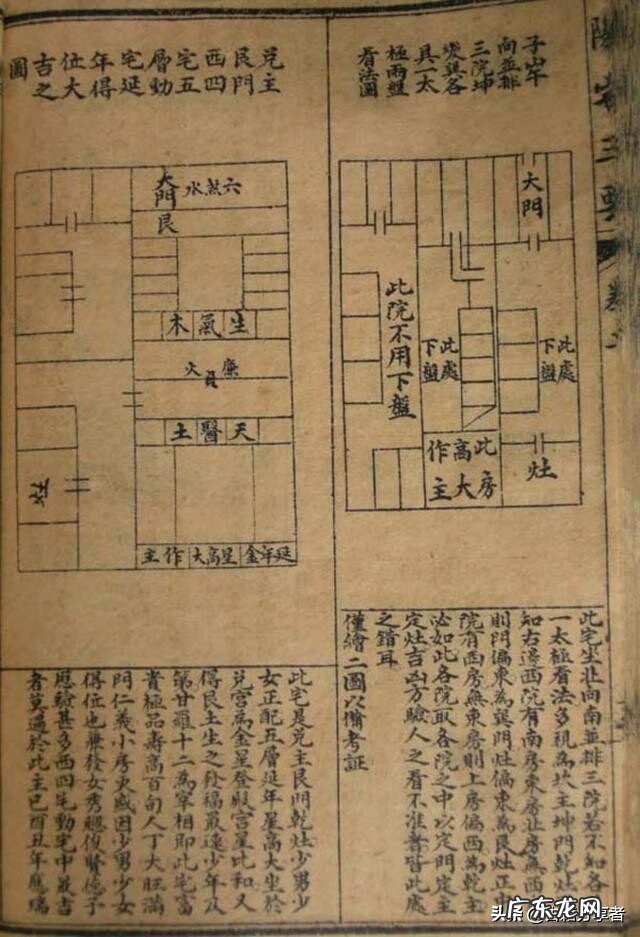 陽宅三要
子山午
向並排
三院坤
巽各
具一太
極兩盤
看法圖
大門
此院不用下盤
此處
下盤
此處
下盤
此房高
大作主
灶
此宅坐北向南並排三院若不知各
一太極看法多視為坎主坤門乾灶
知右邊西院有南房東房北房無西
則門偏東為巽門灶偏東為艮灶正
院有西房無東房則上房偏西為乾主
必如此各院取各院之中以定門定主
定灶吉凶方驗人之看不准者皆此處
之錯耳
僅繪二圖以備考証
兌主
艮門
西四
宅五
層動
宅延
年得
位大
吉之
圖
六煞水
大門
艮
生氣木
廉貞火
天醫土
延年金星高大作主
灶
此宅是兌主艮門乾灶少男少
女正配五層延年星高大坐於
兌宮為金星登殿宮星比和又
得艮土生之發福最遠少年及
第甘羅十二為宰相即此宅富
貴極品壽高百旬人丁大旺滿
門仁義小房更盛因少男少女
得位也兼發女秀聰俊賢德子
應驗甚多西四宅動宅中最吉
者莫過於此主巳酉丑年應瑞
头条
广东龙网
www.gdlonge.com